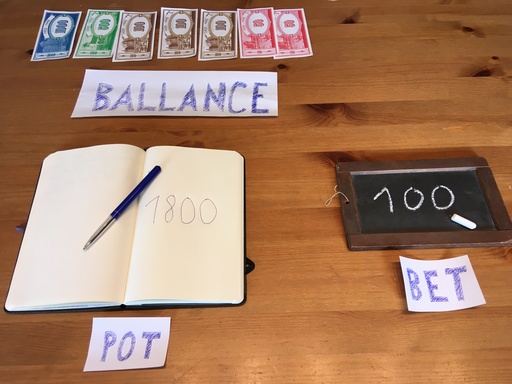 BALLANCE
1800
100
BET
POT